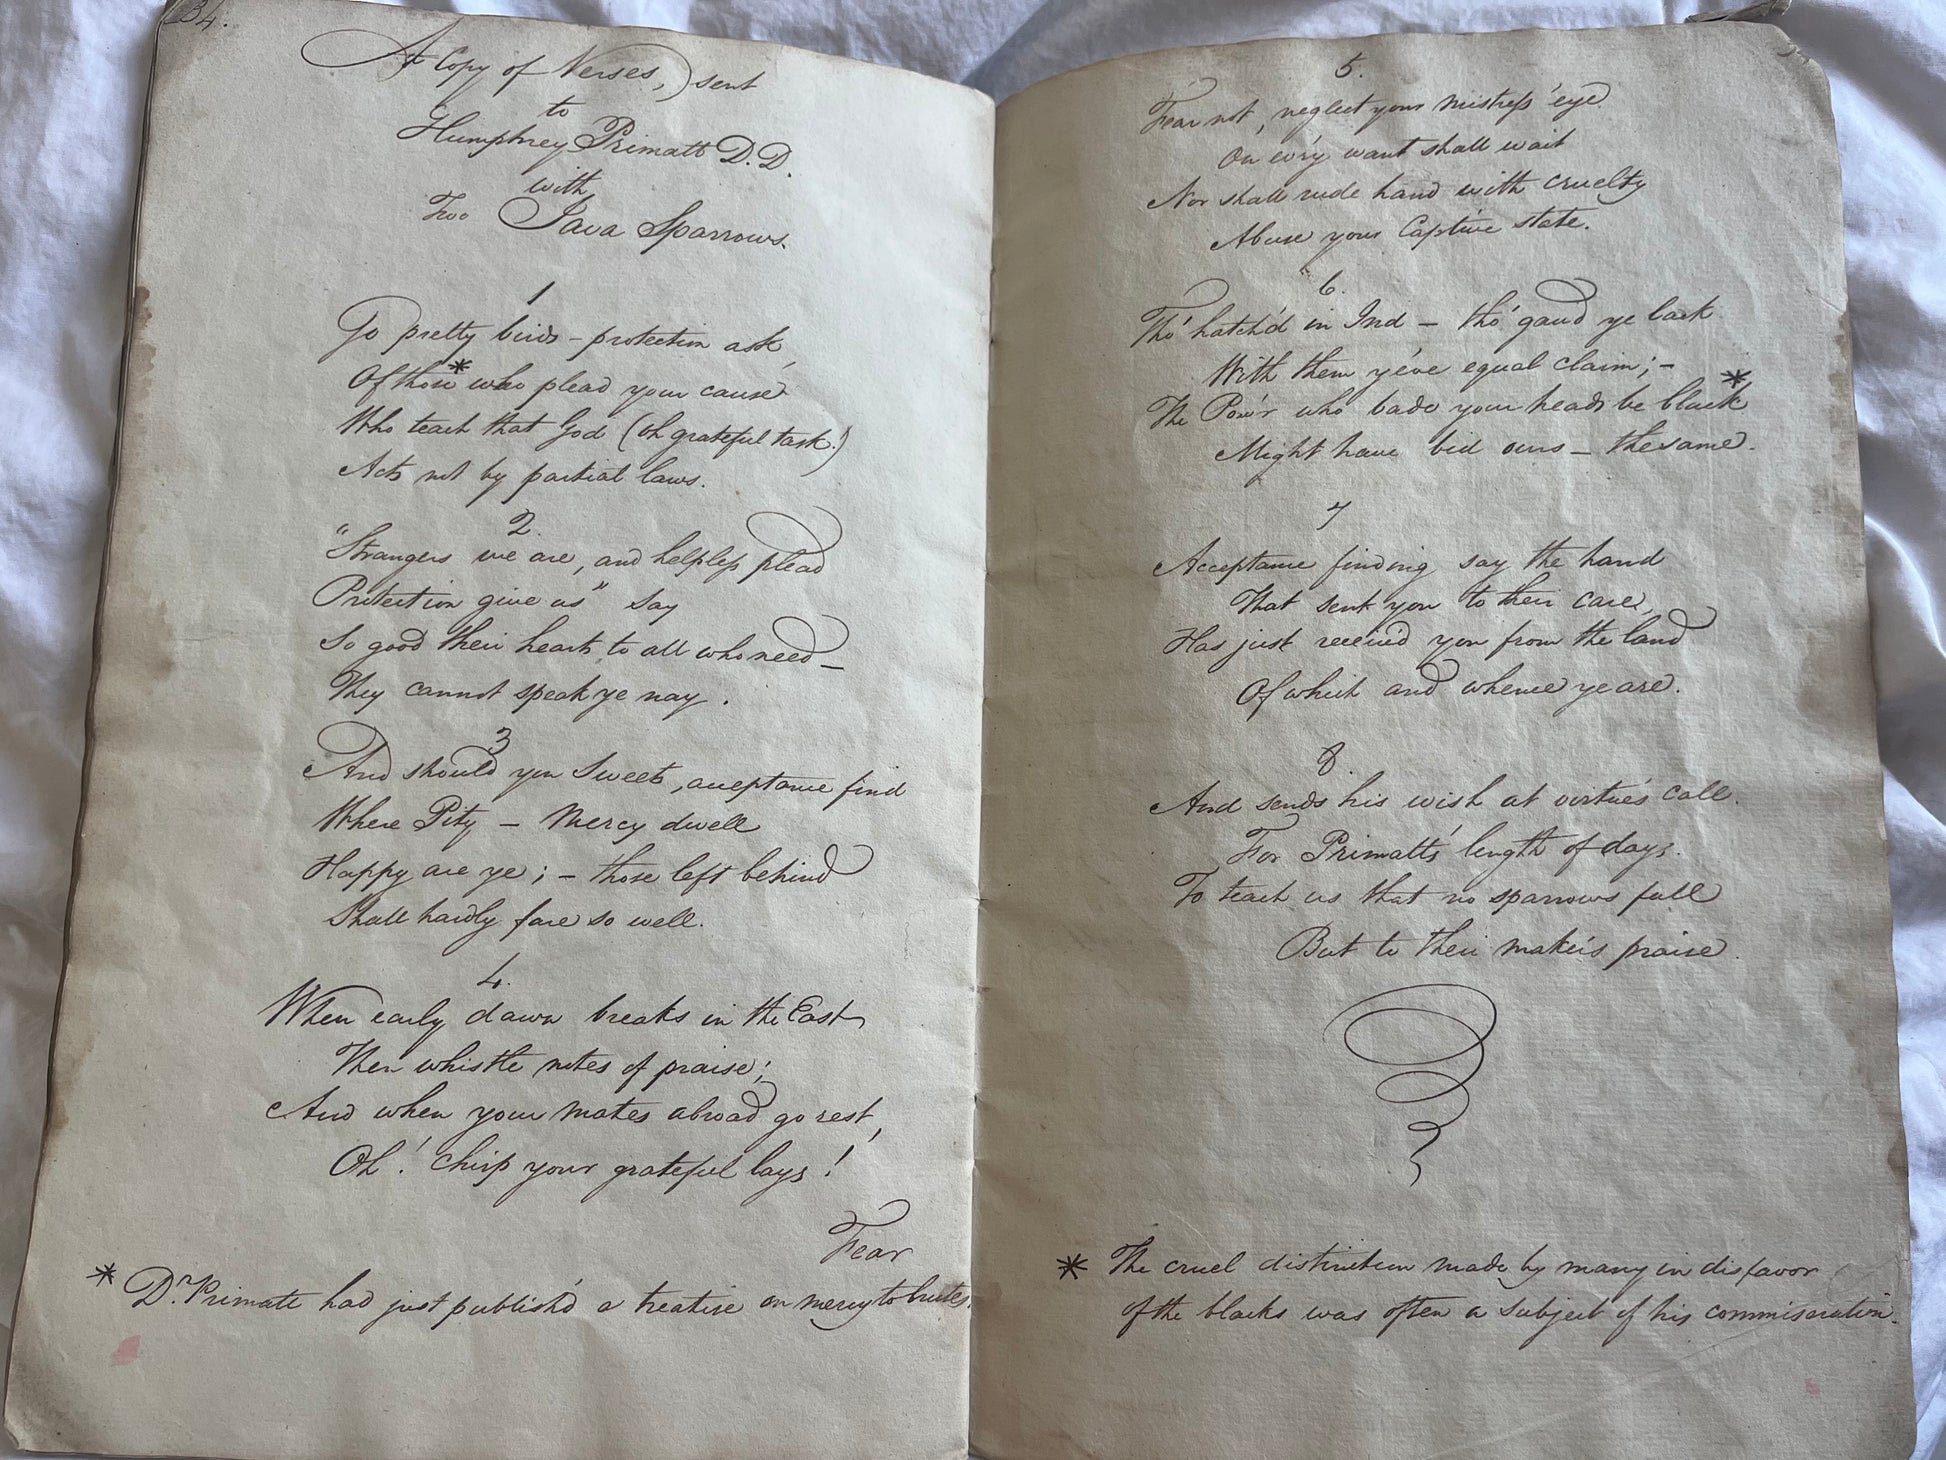 34.
A Copy of Verses, sent
to
Humphrey Primatt D.D.
with
Two Java Sparrows.
1
Go pretty birds - protection ask,
Of those* who plead your cause
Who teach that God (oh grateful task!)
Acts not by partial laws.
2.
"Strangers we are, and helpless plead
Protection give us" say
So good their hearts to all who need —
They cannot speak ye nay.
3
And should you Sweets, acceptance find
Where Pity — Mercy dwell
Happy are ye; - those left behind
Shall hardly fare so well.
4.
When early dawn breaks in the East
Then whistle notes of praise;
And when your mates abroad go rest,
Oh! chirp your grateful lays!
Fear
* Dr. Primatt had just publish'd a treatise on mercy to brutes.
5.
Fear not, neglect your mistress' eye
On ev'ry want shall wait
Nor shall rude hand with cruelty
Abuse your Captive state.
6.
Tho' hatch'd in Ind — tho' gaud ye lack
With them ye've equal claim; -
The Pow'r who bade your heads be black*
Might have bid ours — the same.
7
Acceptance finding say the hand
That sent you to their care,
Has just receiv'd you from the land
Of which and whence ye are.
8.
And sends his wish at virtue's call.
For Primatt's length of days.
To teach us that no sparrows fall
But to their maker's praise.
* The cruel distinction made by many in disfavor
of the blacks was often a subject of his commiseration.